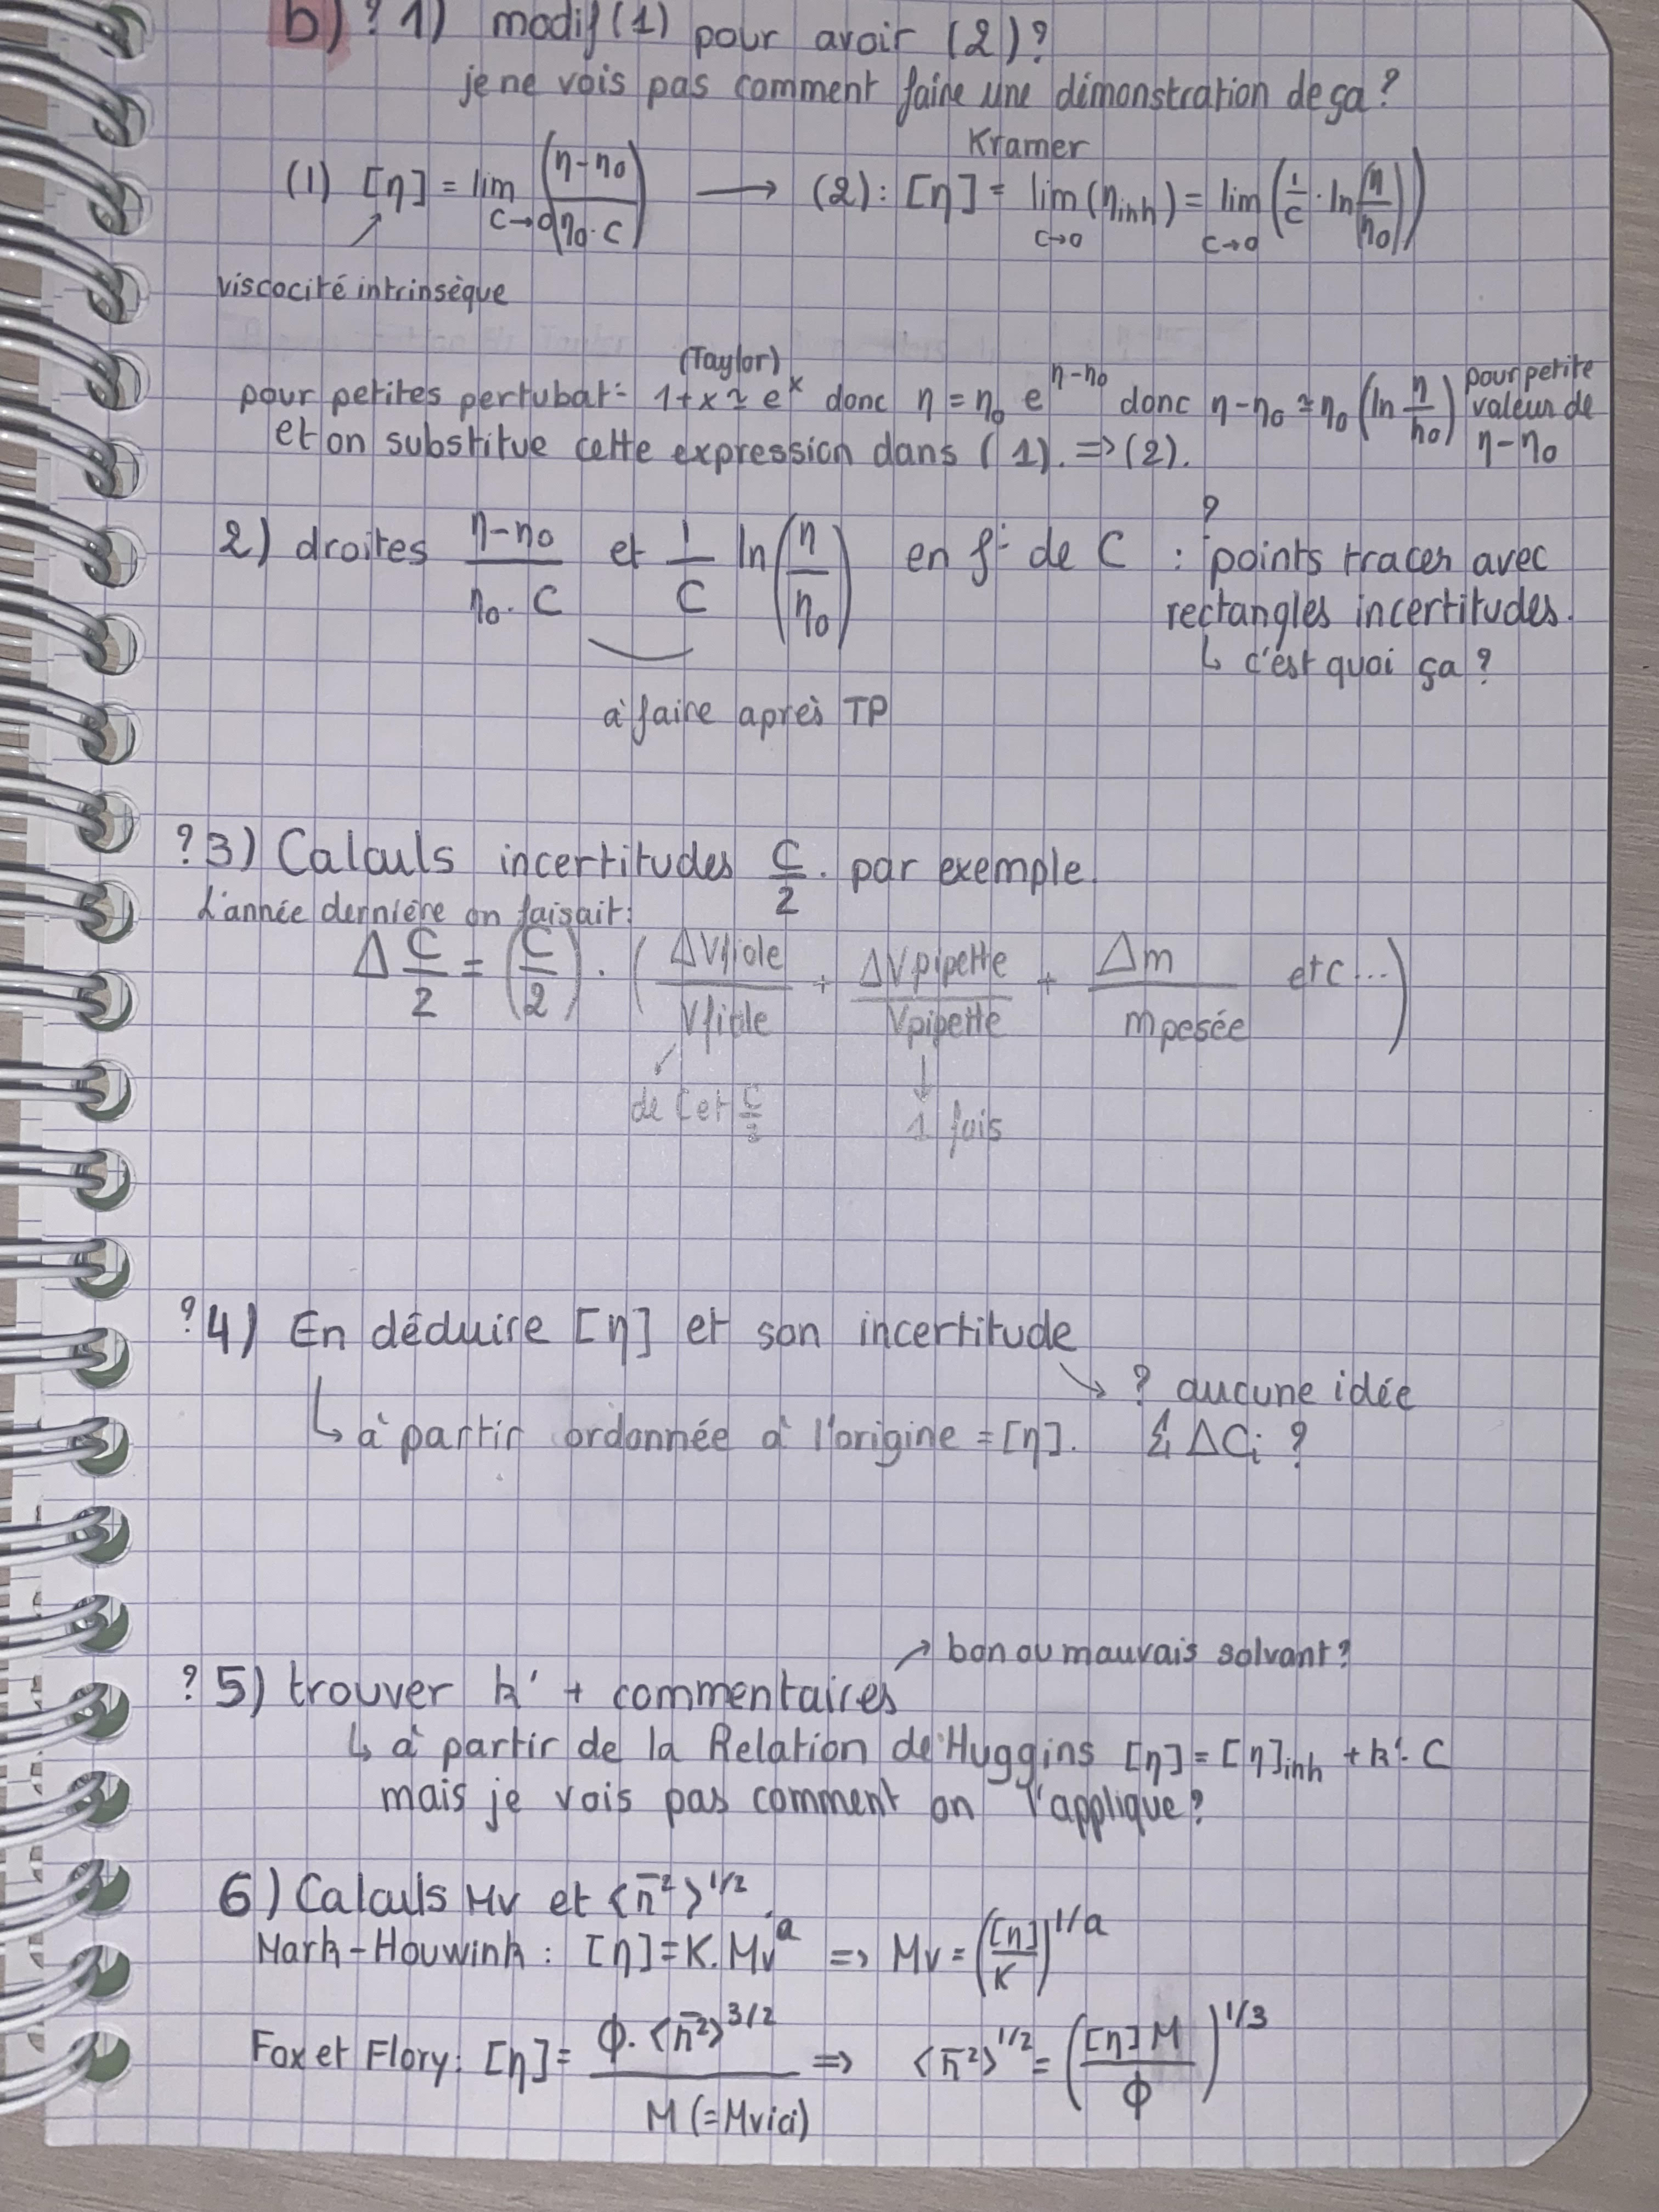 b) ? 1) modif (1) pour avoir (2)?
je ne vois pas comment faire une démonstration de ça ?
Kramer
(1) [η] = lim C→0 ((η-η0)/(η0·C)) → (2) : [η] = lim C→0 (ηinh) = lim C→0 (1/C · ln(η/η0))
viscocité intrinsèque
(Taylor)
pour petites pertubat°: 1+x ≃ e^x donc η = η0 e^(η-η0) donc η-η0 ≃ η0 (ln η/η0) pour petite valeur de η-η0
et on substitue cette expression dans (1). => (2).
2) droites (η-η0)/(η0·C) et 1/C ln(η/η0) en f° de C : ? points tracer avec
rectangles incertitudes.
↳ c'est quoi ça ?
à faire après TP
? 3) Calculs incertitudes C/2. par exemple.
L'année dernière on faisait:
Δ C/2 = (C/2) · (ΔVfiole/Vfiole + ΔVpipette/Vpipette + Δm/mpesée etc...)
de C et C/2
1 fois
? 4) En déduire [η] et son incertitude
→ ? aucune idée
↳ à partir ordonnée à l'origine = [η]. Σ ΔCi ?
→ bon ou mauvais solvant ?
? 5) trouver k' + commentaires
↳ à partir de la Relation de Huggins [η] = [η]inh + k'· C
mais je vois pas comment on l'applique ?
6) Calculs Mv et <r̄²>^1/2.
Mark-Houwink : [η] = K. Mv^a => Mv = ([η]/K)^1/a
Fox et Flory : [η] = ϕ. <r̄²>^3/2 / M (= Mv ici) => <r̄²>^1/2 = ([η] M/ϕ)^1/3